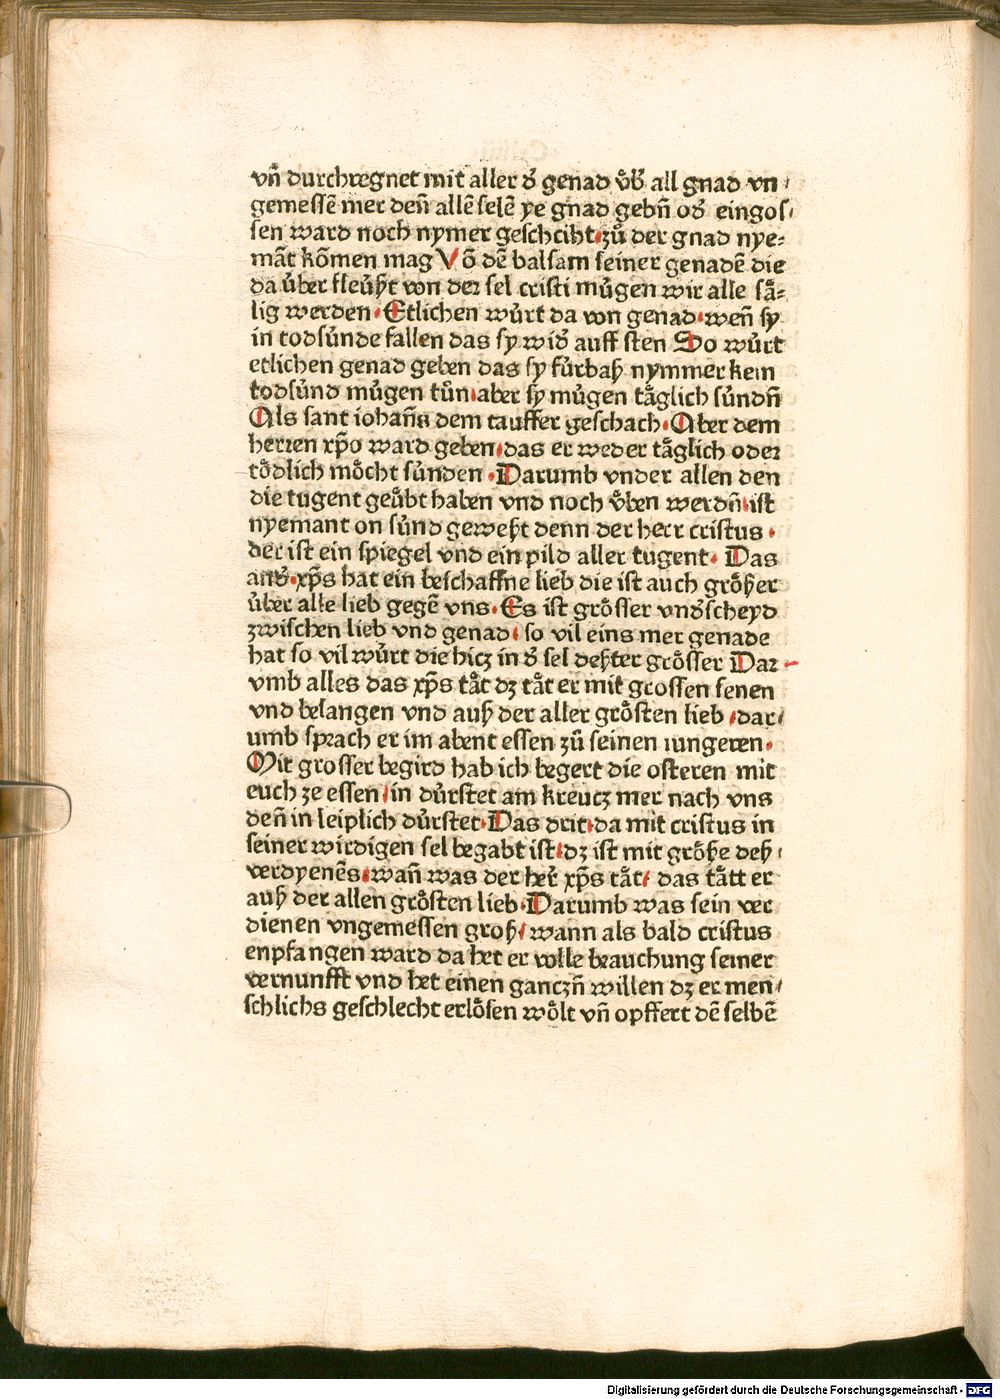 vn̄ durchregnet mit aller d᷑ genad v̊b᷑ all gnad vn⸗
gemessē mer den̄ allē selē ye gnad gebn̄ od᷑ eingos⸗
sen ward noch nymer geschciht·zů der gnad nye⸗
māt kōmen mag Vō dē balsam seiner genadē die
da ůber fleůßt von der sel cristi můgen wir alle sā̊⸗
lig werden·Etlichen wůrt da von genad·wen̄ sy
in todsůnde fallen das sy wid᷑ auff sten So wůrt
etlichen genad geben das sy fůrbaß nymmer kein
todsůnd můgen tůn·aber sy můgen tåglich sůndn̄
Als sant iohan̄s dem tauffer geschach·Aber dem
herren xp̄o ward geben·das er weder tåglich oder
tȯdlich mȯcht sůnden·Darumb vnder allen den
die tugent geůbt haben vnd noch v̊ben werdn̄·ist
nyemant on sůnd geweßt denn der herr cristus·
der ist ein spiegel vnd ein pild aller tugent· Das
and᷑·xp̄s hat ein beschaffne lieb die ist auch grȯßer
ůber alle lieb gegē vns·Es ist grȯsser vnd᷑scheyd
zwischen lieb vnd genad· so vil eins mer genade
hat so vil wůrt die hicz in d᷑ sel deßter grȯsser Dar
vmb alles das xp̄s tåt dz tåt er mit grossen senen
vnd belangen vnd auß der aller grȯsten lieb /dar⸗
umb sprach er im abent essen zů seinen iungeren·
Mit grosser begird hab ich begert die osteren mit
euch ze essen/in důrstet am kreucz mer nach vns
den̄ in leiplich důrstet·Das drit·da mit cristus in
seiner wirdigen sel begabt ist·dz ist mit grȯße deß⸗
verdyenēs·wan̄ was der her̄ xp̄s tåt/ das tått er
auß der allen grȯsten lieb·Darumb was sein ver
dienen vngemessen groß/ wann als bald cristus
enpfangen ward da het er volle beauchung seiner
vernunfft vnd het einen ganczn̄ willen dz er men⸗
schlichs geschlecht erlȯsen wȯlt vn̄ opffert dē selbē
Digitalisierung gefördert durch die Deutsche Forschungsgemeinschaft - DFG